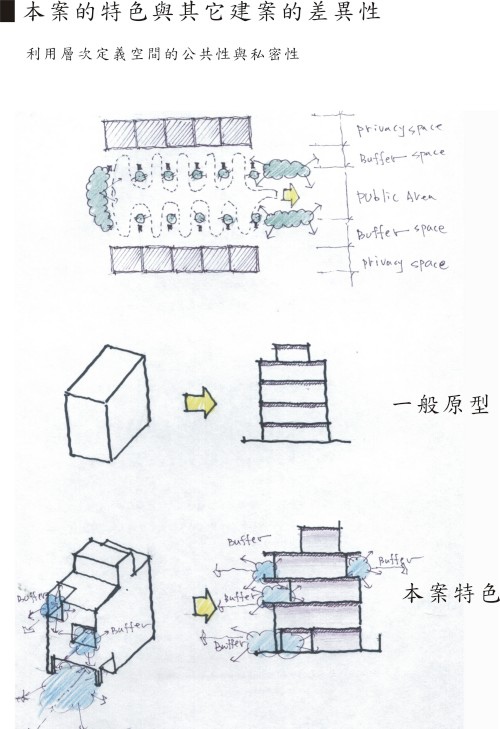 本案的特色與其它建案的差異性
利用層次定義空間的公共性與私密性
privacy space
Buffer space
Public Area
Buffer space
privacy space
一般原型
Buffer
Buffer
Buffer
Buffer
Buffer
Buffer
本案特色